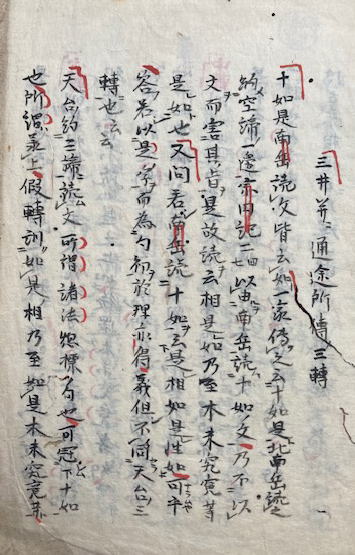 三井并ニ通途所傳三轉
十如是南岳読文皆云如一家傳定云十如是北南岳読
約空諦一邊 記一曰以南岳読十如文乃不以
文而害其旨是故読云相是如乃至本末究竟等
是如也又問若南岳読十如云是相如是性如可乎
答若以是字而為句初於理亦得義但不同天台三
轉也云云
天台約三諦読文所謂諸法惣標句也可冠下十如
也所謂並上假轉訓如是相乃至如是本末究竟等